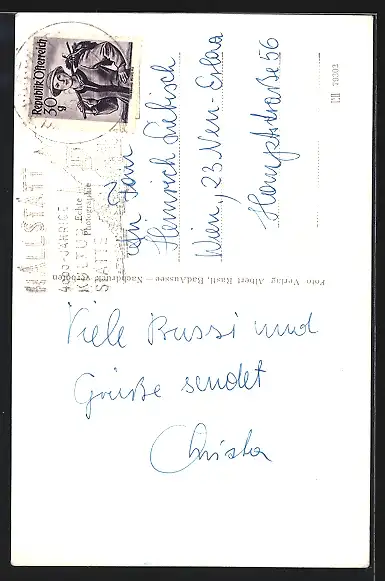 Republik Österreich
30 g
HALLSTATT
4000-JÄHRIGE
KULTUR
STÄTTE
Echte
Photographie
Foto Verlag Albert Rastl, Bad Aussee — Nachdruck verboten
Fam
Heinrich Liebisch
Wien, 23 Neu-Erlaa
Hauptstraße 56
Viele Bussi und
Grüße sendet
Christa